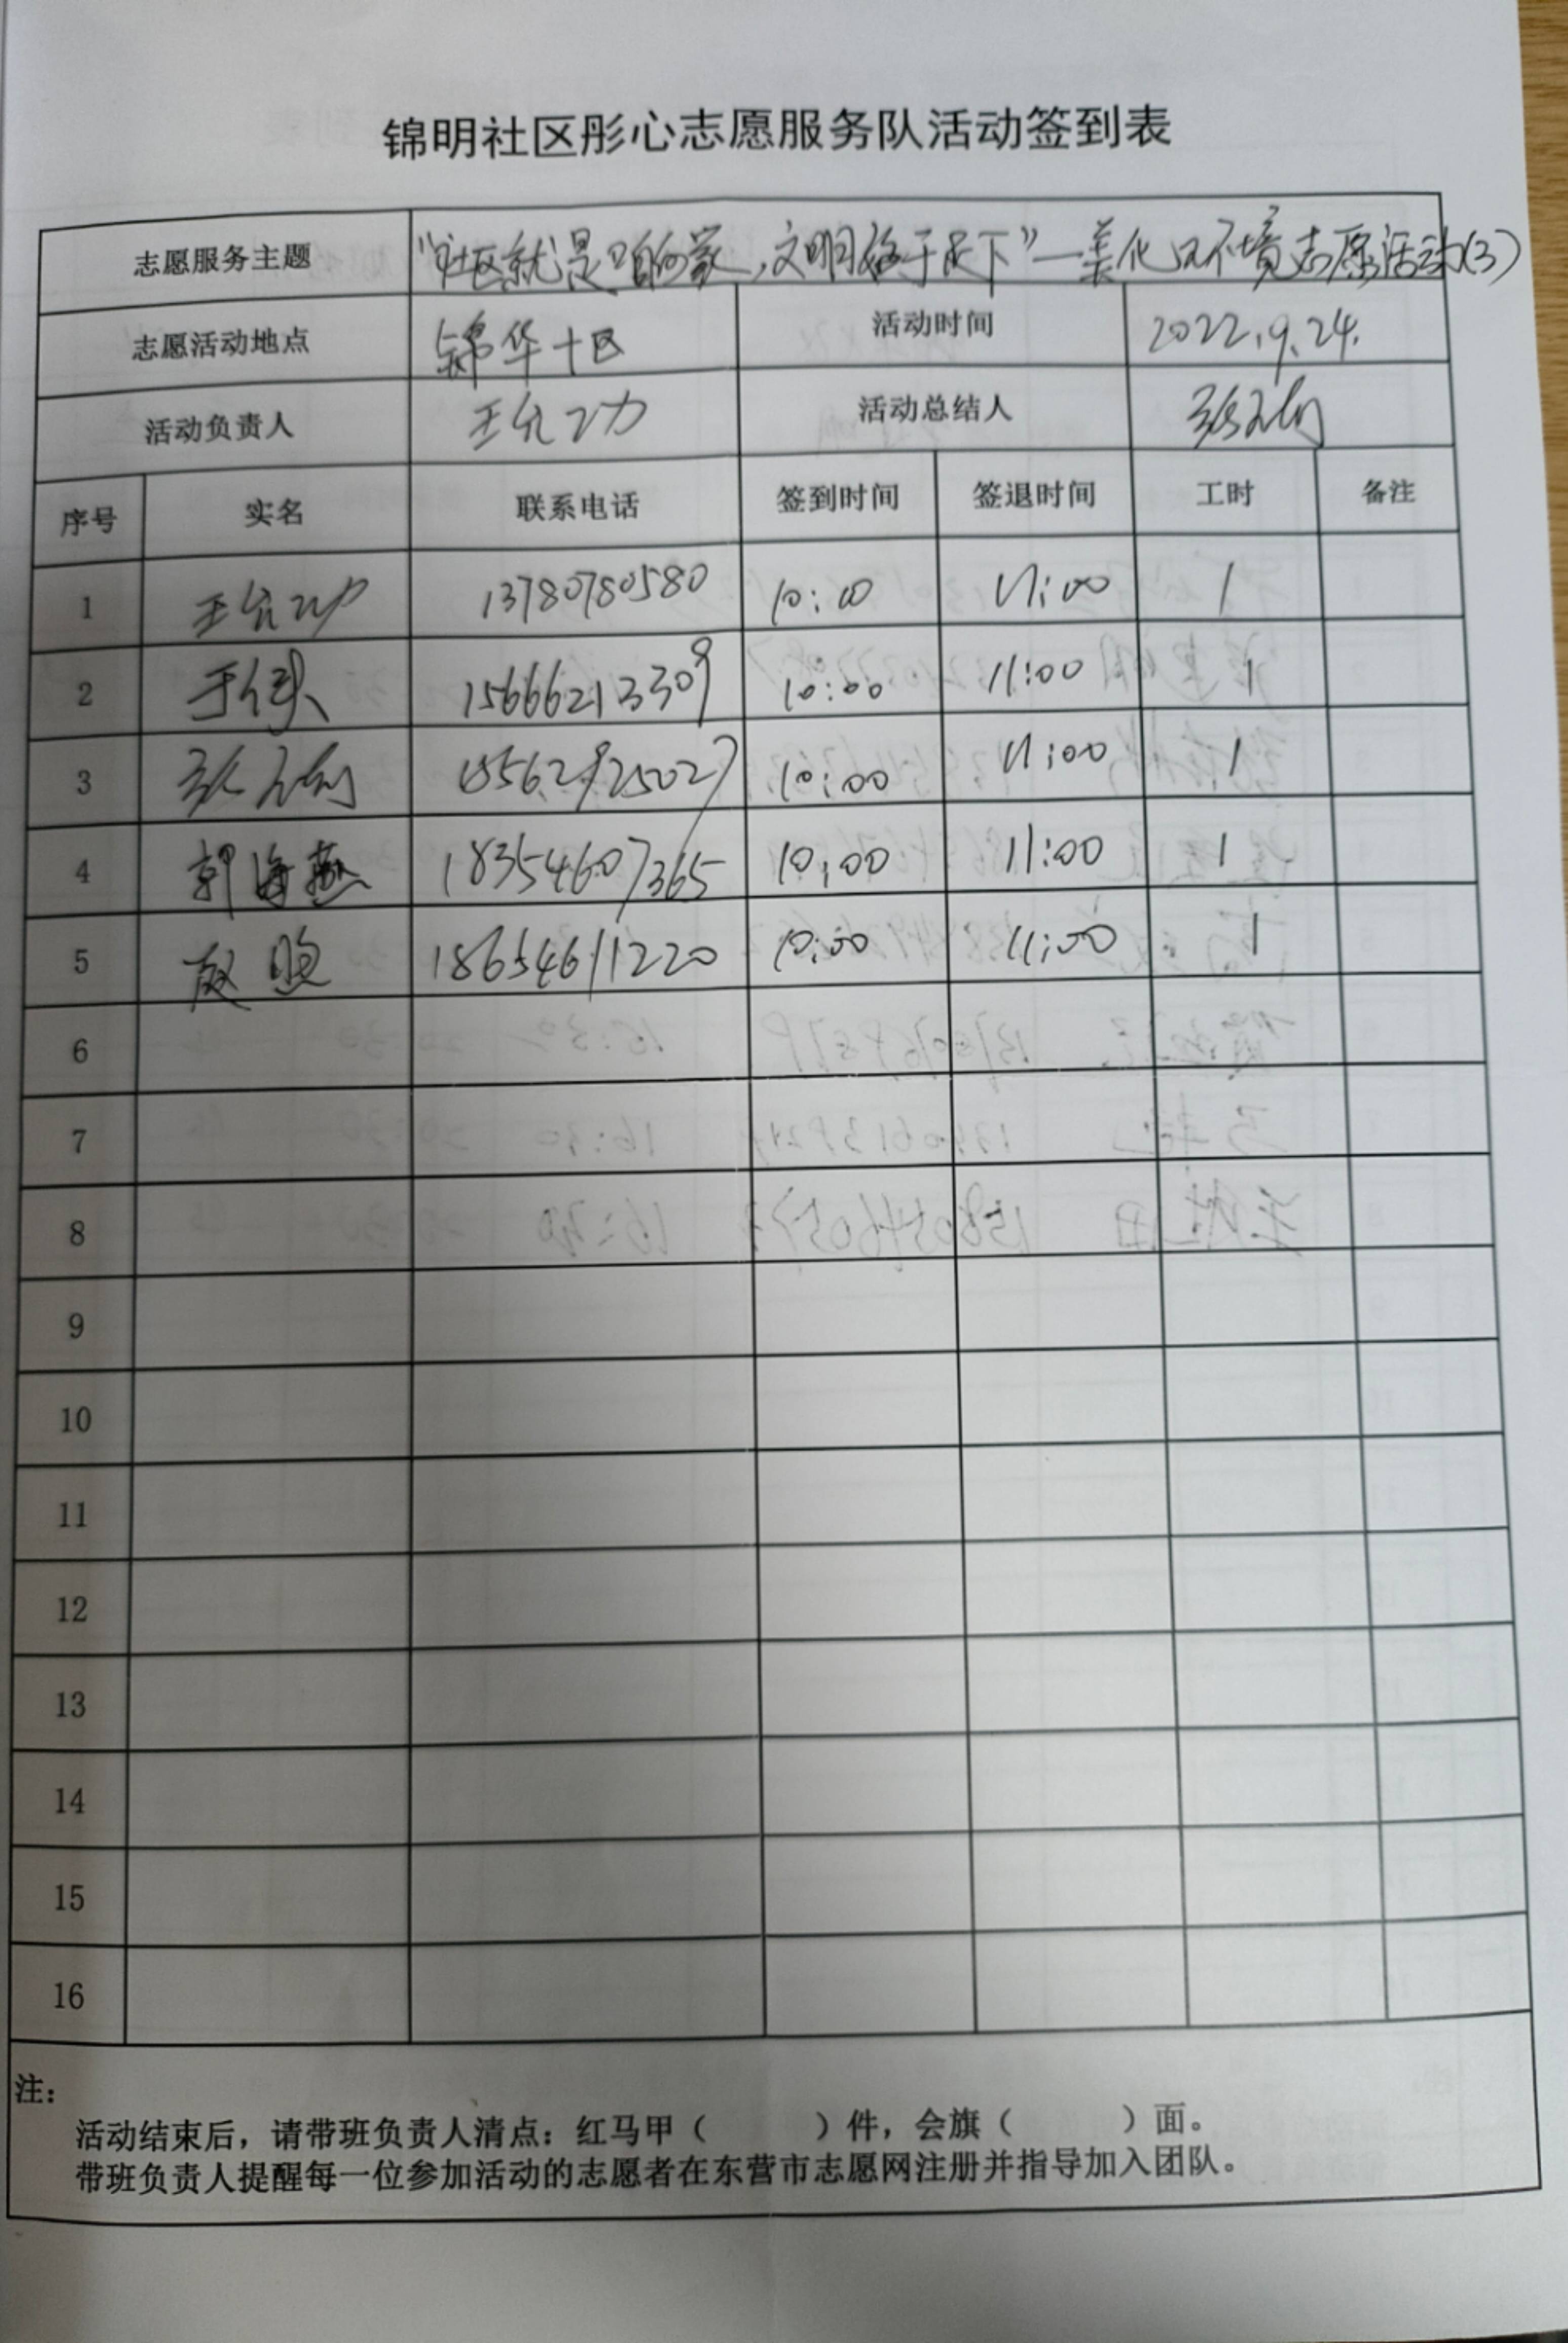 锦明社区彤心志愿服务队活动签到表
志愿服务主题 "社区就是咱的家,文明始于足下"—美化环境志愿活动(3)
志愿活动地点 锦华十区 活动时间 2022.9.24.
活动负责人 王允功 活动总结人 张
序号 实名 联系电话 签到时间 签退时间 工时 备注
1 王允功 13780780580 10:00 11:00 1
2 于 15666213309 10:00 11:00 1
3 张 15562925027 10:00 11:00 1
4 郭海燕 18354607365 10:00 11:00 1
5 赵 18654611220 10:00 11:00 1
6
7
8
9
10
11
12
13
14
15
16
注:
活动结束后,请带班负责人清点:红马甲( )件,会旗( )面。
带班负责人提醒每一位参加活动的志愿者在东营市志愿网注册并指导加入团队。